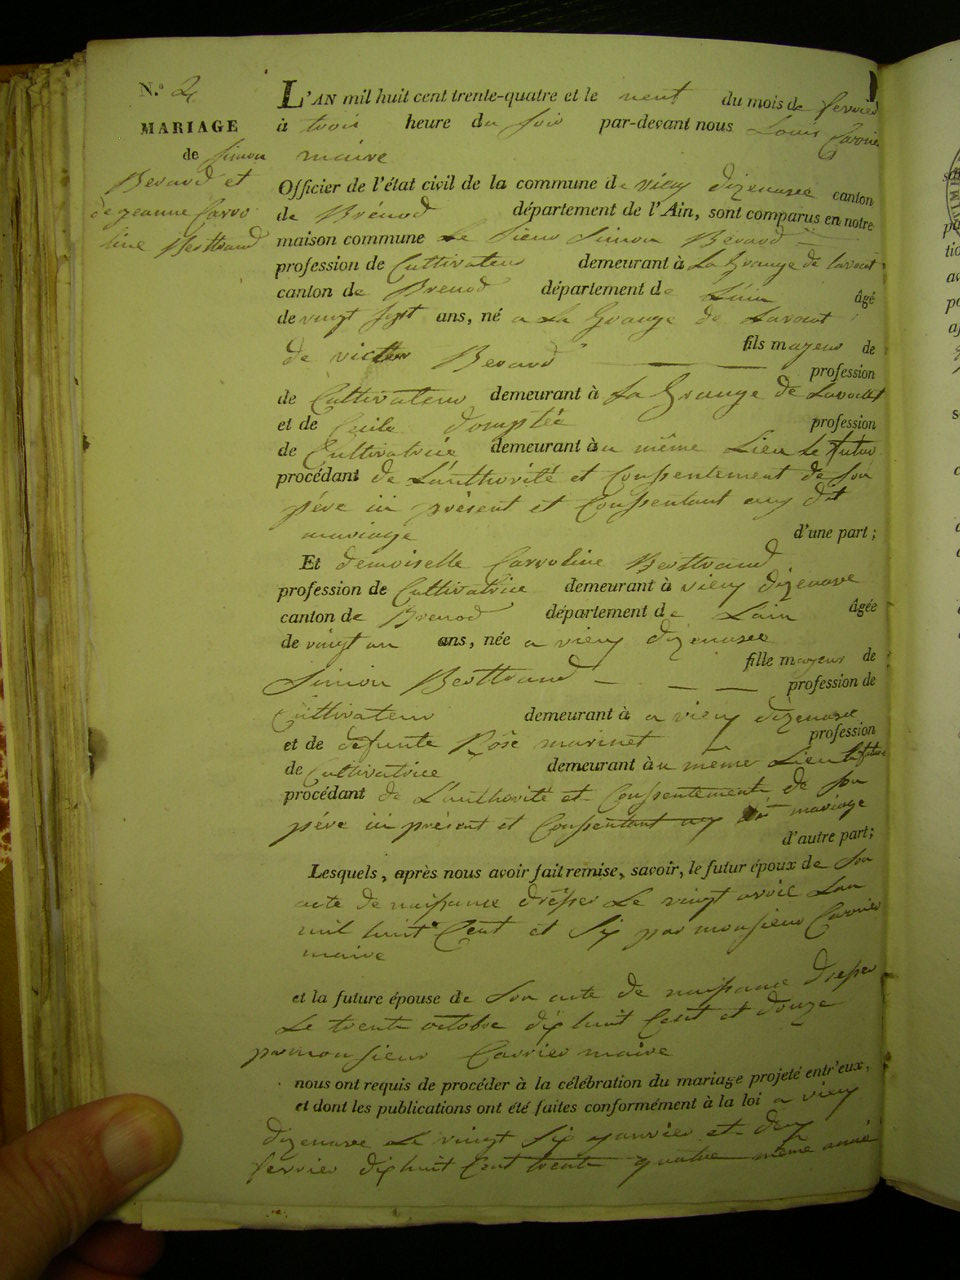 N.º 2
MARIAGE
de Simon
Berard et
de jeanne Carro
line Berttrand
L'AN mil huit cent trente-quatre et le neuf du mois de fevrier
à trois heure du soir par-devant nous Louis Carrier
maire
Officier de l'état civil de la commune de vieu dizenave canton
de Brénod département de l'Ain, sont comparus en notre
maison commune Le Sieur Simon Berard
profession de Cultivateur demeurant à La Grange de Lavout
canton de Brenod département de L'ain âgé
de vingt sept ans, né a La Grange de Lavout
fils mayeur de
de victor Berard profession
de Cultivateur demeurant à La Grange de Lavout
et de Cecile domptée profession
de Cultivatrice demeurant àu même Lieu Le futur
procédant de L'authorité et Conssentement de son
père ici présent et Conssentant auy dit
mariage d'une part ;
Et demoiselle Carroline Berttrand
profession de Cultivatrice demeurant à vieu dizenave
canton de Brenod département de Lain âgée
de vingt un ans, née a vieu dizenave
fille mayeur de
Simon Berttrand profession de
Cultivateur demeurant à a vieu dizenave
et de défunte Rose marinet profession
de Cultivatrice demeurant àu même Lieu la future
procédant de L'authorité et Conssentement de son
père ici présent et Conssentant auy dit mariage
d'autre part ;
Lesquels, après nous avoir fait remise, savoir, le futur époux de Son
acte de naissance drésser Le vingt avril Lan
mil huit Cent et Six par monsieur Carrier
maire
et la future épouse de Son acte de naissance dresser
Le trente octobre dix huit Cent et douze
par monsieur Carrier maire
nous ont requis de procéder à la célébration du mariage projeté entr'eux,
et dont les publications ont été faites conformément à la loi a vieu
dizenave Le vingt Six janvier et deux
fevrier dix huit Cent trente quatre même année